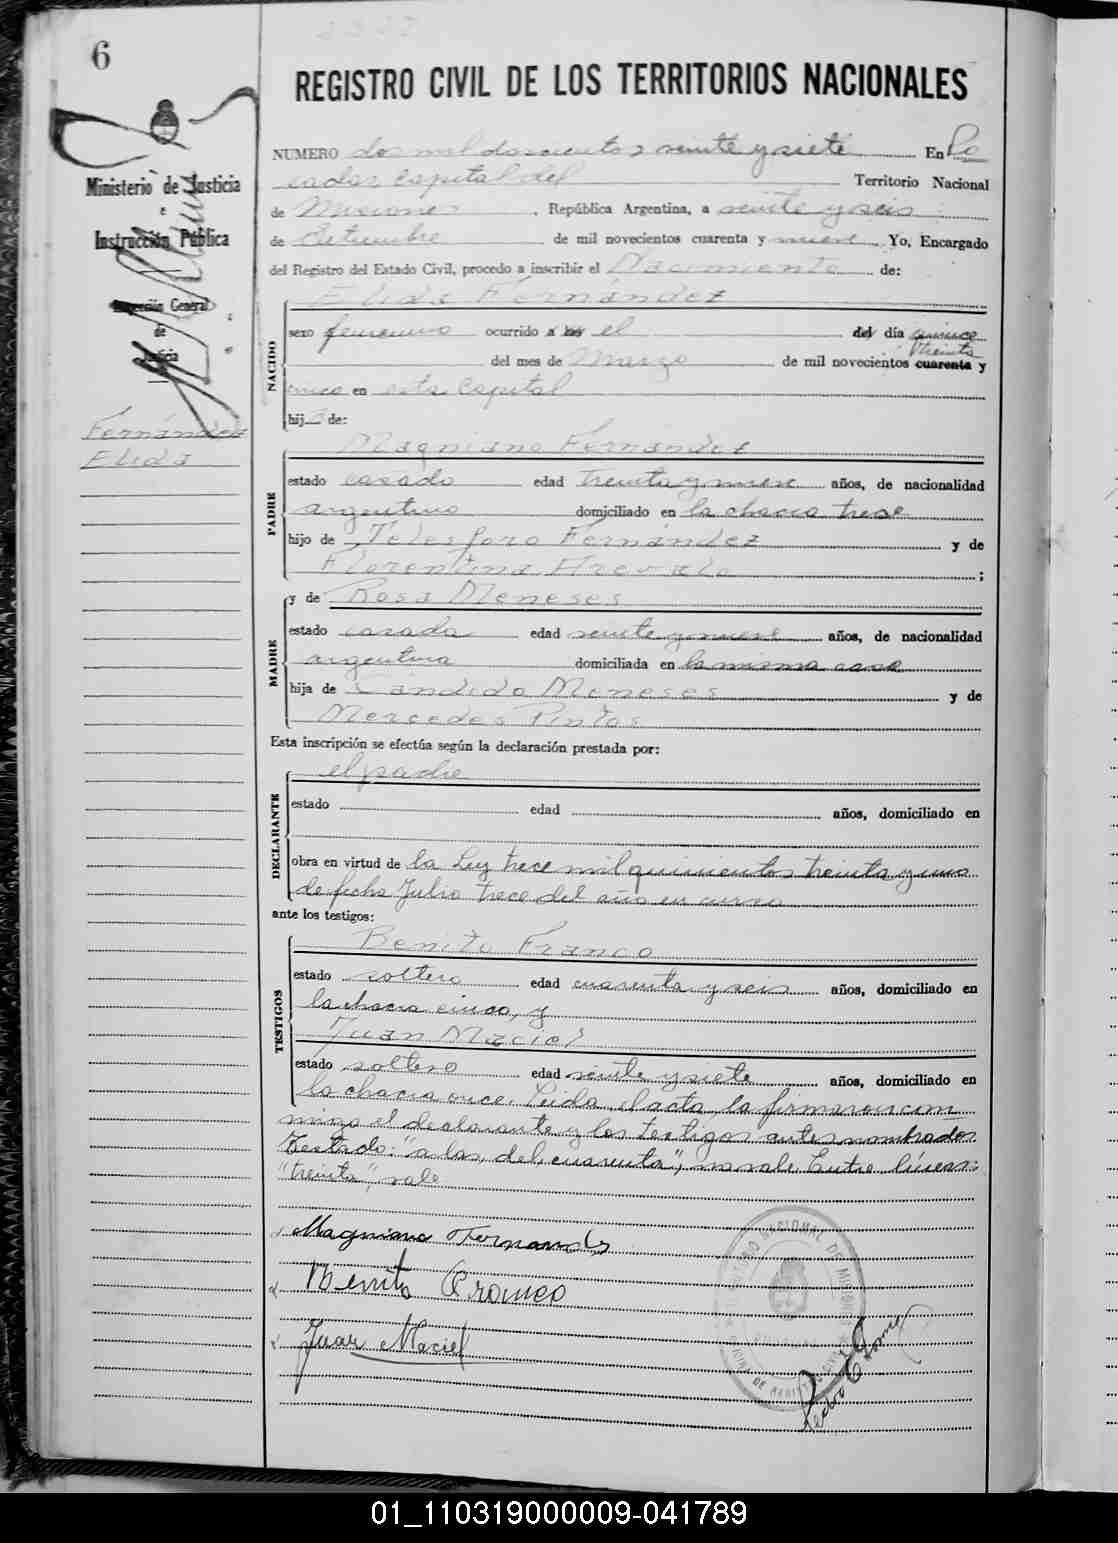 6
REGISTRO CIVIL DE LOS TERRITORIOS NACIONALES
Ministerio de Justicia
e
Instrucción Pública
Inspección General
de
Justicia
Fernández
Elida
NUMERO dos mil doscientos veinte y siete En Po
sadas capital del Territorio Nacional
de Misiones, República Argentina, a veinte y seis
de Setiembre de mil novecientos cuarenta y nueve Yo, Encargado
del Registro del Estado Civil, procedo a inscribir el Nacimiento de:
Elida Fernández
NACIDO
sexo femenino ocurrido a las el del día quince
treinta
del mes de Marzo de mil novecientos cuarenta y
cinco en esta Capital
hija de:
Magniano Fernández
PADRE
estado casado edad treinta y nueve años, de nacionalidad
argentino domiciliado en la chacra trece
hijo de Telesforo Fernández y de
Florentina Arevalo;
y de Rosa Meneses
MADRE
estado casada edad veinte y nueve años, de nacionalidad
argentina domiciliada en la misma casa
hija de Cándido Meneses y de
Mercedes Pintos
Esta inscripción se efectúa según la declaración prestada por:
el padre
DECLARANTE
estado edad años, domiciliado en
obra en virtud de la Ley trece mil quinientos treinta y uno
de fecha Julio trece del año en curso
ante los testigos:
Benito Franco
TESTIGOS
estado soltero edad cuarenta y seis años, domiciliado en
la chacra cinco, y
Juan Maciel
estado soltero edad veinte y siete años, domiciliado en
la chacra once. Leida el acta la firmaron con
migo el declarante y los testigos antes nombrados
Testado: "a las, del, cuarenta", no vale. Entre líneas:
"treinta", vale
Magniano Fernandes
Benito Franco
Juan Maciel
01_110319000009-041789